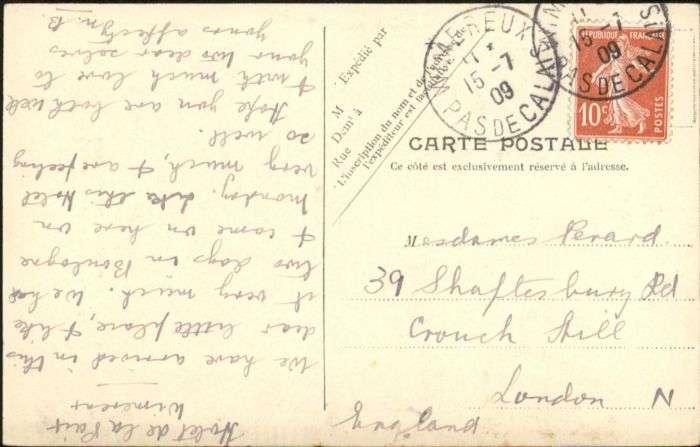 Hotel de la Paix
Wimereux
We have arrived in this
dear little place, & like
it very much. We had
two days in Boulogne
& came on here on
Monday. Like this Hotel
very much, & are feeling
so well.
Hope you are both well
& with much love to
your two dear selves
yours affectly. B
M
Expédié par
Demt à
Rue
L'inscription du nom et de l'adresse de
l'expéditeur est facultative.
WIMEREUX
15 -7
09
PAS DE CALAIS
WIM
15 -7
09
PAS DE CALAIS
REPUBLIQUE FRANCAISE
10c
POSTES
CARTE POSTALE
Ce côté est exclusivement réservé à l'adresse.
Mesdames Perard
39 Shaftesbury Rd
Crouch Hill
London N
England